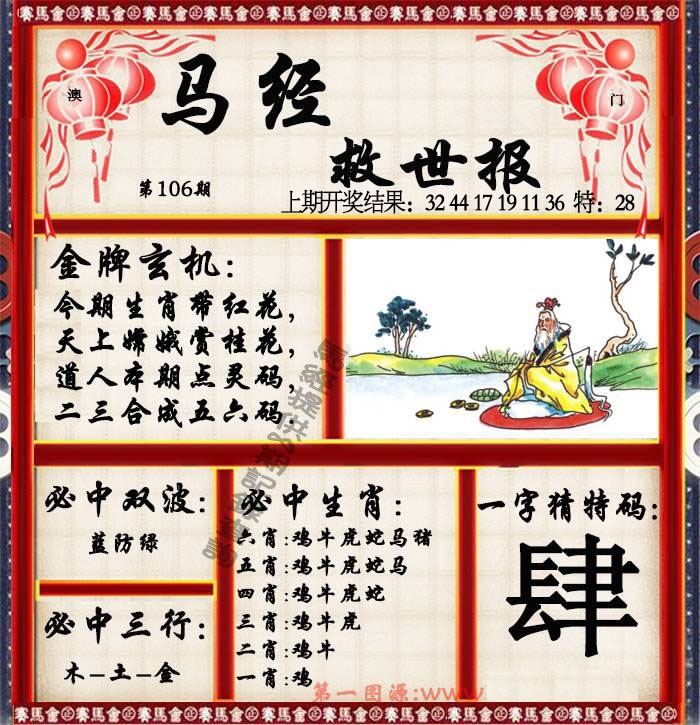 賽馬會賽馬會賽馬會賽馬會賽馬會賽馬會賽馬會賽馬會
澳门
马经
救世报
第106期
上期开奖结果：32 44 17 19 11 36 特：28
金牌玄机：
今期生肖带红花，
天上嫦娥赏桂花，
道人本期点灵码，
二三合成五六码.
必中双波：
蓝防绿
必中三行：
木–土–金
必中生肖：
六肖：鸡牛虎蛇马猪
五肖：鸡牛虎蛇马
四肖：鸡牛虎蛇
三肖：鸡牛虎
二肖：鸡牛
一肖：鸡
一字猜特码：
肆
第一图源:www